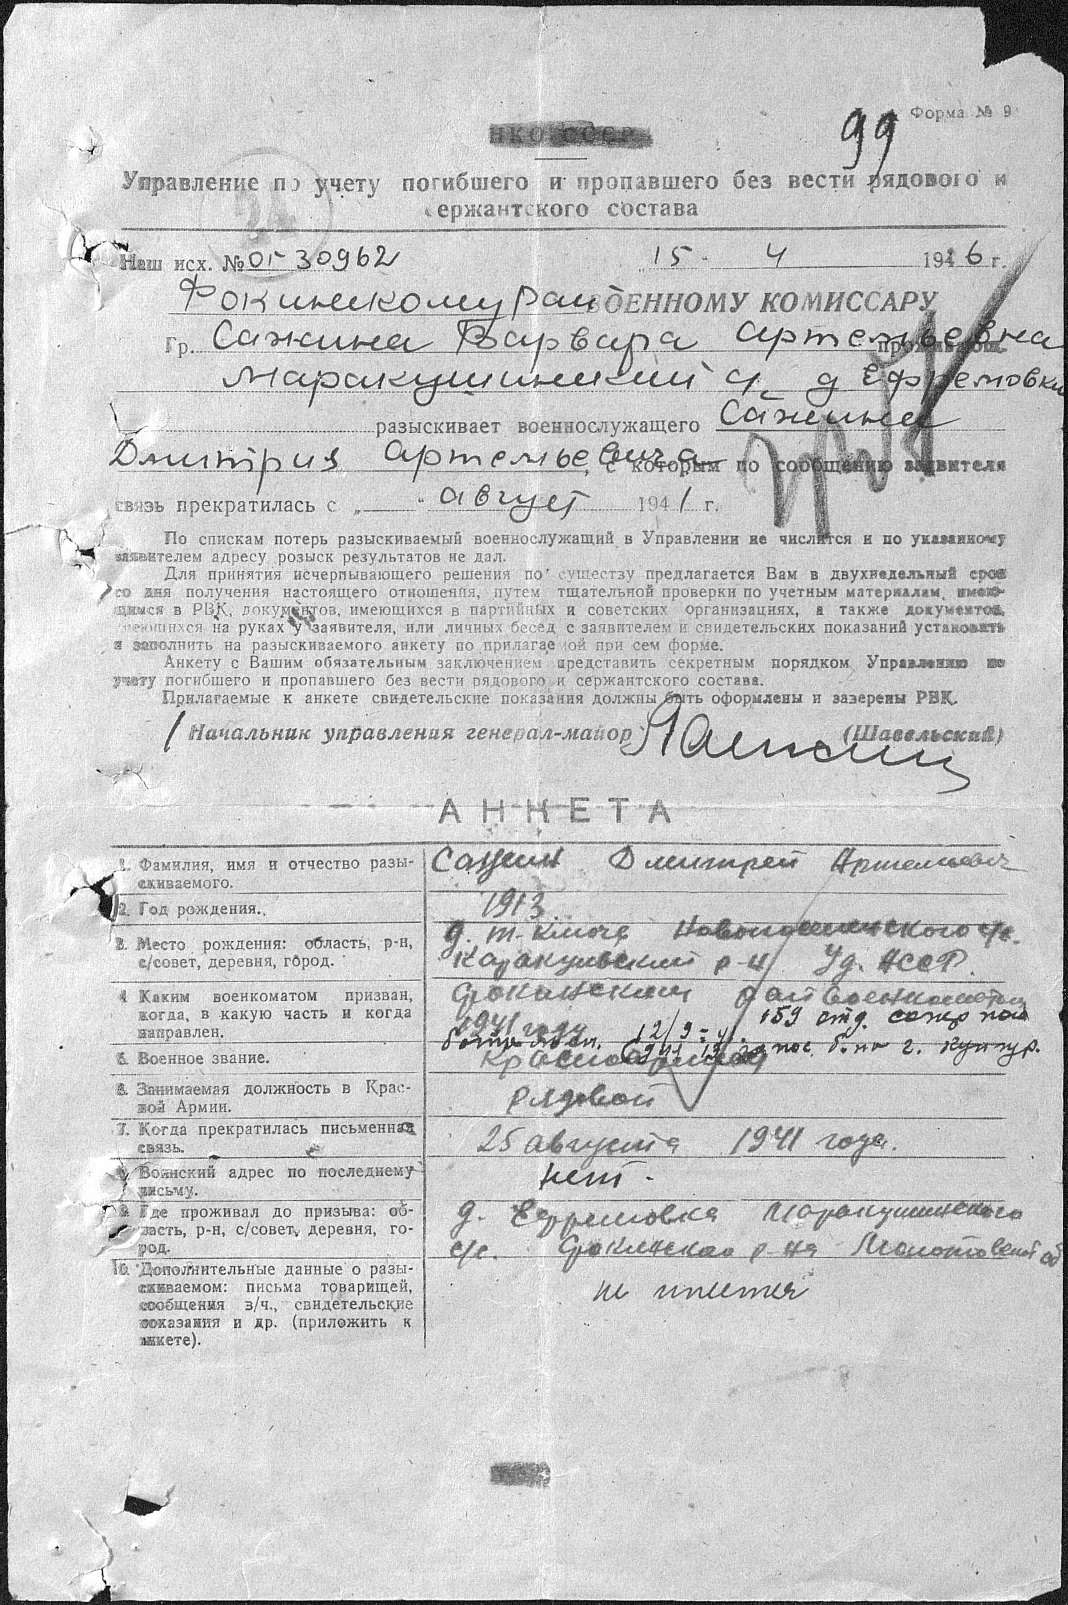 Форма № 9
99
НКО СССР
Управление по учету погибшего и пропавшего без вести рядового и
сержантского состава
24
Наш исх. № 0г-30962 15 - 4 1946 г.
Фокинскому рай ВОЕННОМУ КОМИССАРУ
Гр. Сажина Варвара Артемьевна прожива
Маракушинский с/с д Ефремовка
разыскивает военнослужащего Сажина
Дмитрия Артемьевича, с которым по сообщению заявителя
связь прекратилась с „ " август 1941 г.
По спискам потерь разыскиваемый военнослужащий в Управлении не числится и по указанному
заявителем адресу розыск результатов не дал.
Для принятия исчерпывающего решения по существу предлагается Вам в двухнедельный срок
со дня получения настоящего отношения, путем тщательной проверки по учетным материалам, имею-
щимся в РВК, документов, имеющихся в партийных и советских организациях, а также документов,
имеющихся на руках у заявителя, или личных бесед с заявителем и свидетельских показаний установить
и заполнить на разыскиваемого анкету по прилагаемой при сем форме.
Анкету с Вашим обязательным заключением представить секретным порядком Управлению по
учету погибшего и пропавшего без вести рядового и сержантского состава.
Прилагаемые к анкете свидетельские показания должны быть оформлены и заверены РВК.
Начальник управления генерал-майор (Шавельский)
АНКЕТА
1. Фамилия, имя и отчество разы-
скиваемого.
Сажин Дмитрей Артемьевич
2. Год рождения.
1913
3. Место рождения: область, р-н,
с/совет, деревня, город.
д. т-ключ с/с.
Каракулинский р-н Уд. АССР.
4. Каким военкоматом призван,
когда, в какую часть и когда
направлен.
Фокинским райвоенкоматом
1941 году 12/9-41. 159 отд. сапер
5. Военное звание.
Красноармеец
6. Занимаемая должность в Крас-
ной Армии.
рядовой
7. Когда прекратилась письменная
связь.
25 августа 1941 года.
8. Воинский адрес по последнему
письму.
нет.
9. Где проживал до призыва: об-
ласть, р-н, с/совет, деревня, го-
род.
д. Ефремовка Маракушинского
с/с. Фокинского р-на Молотовской об
10. Дополнительные данные о разы-
скиваемом: письма товарищей,
сообщения в/ч., свидетельские
показания и др. (приложить к
анкете).
не имеется